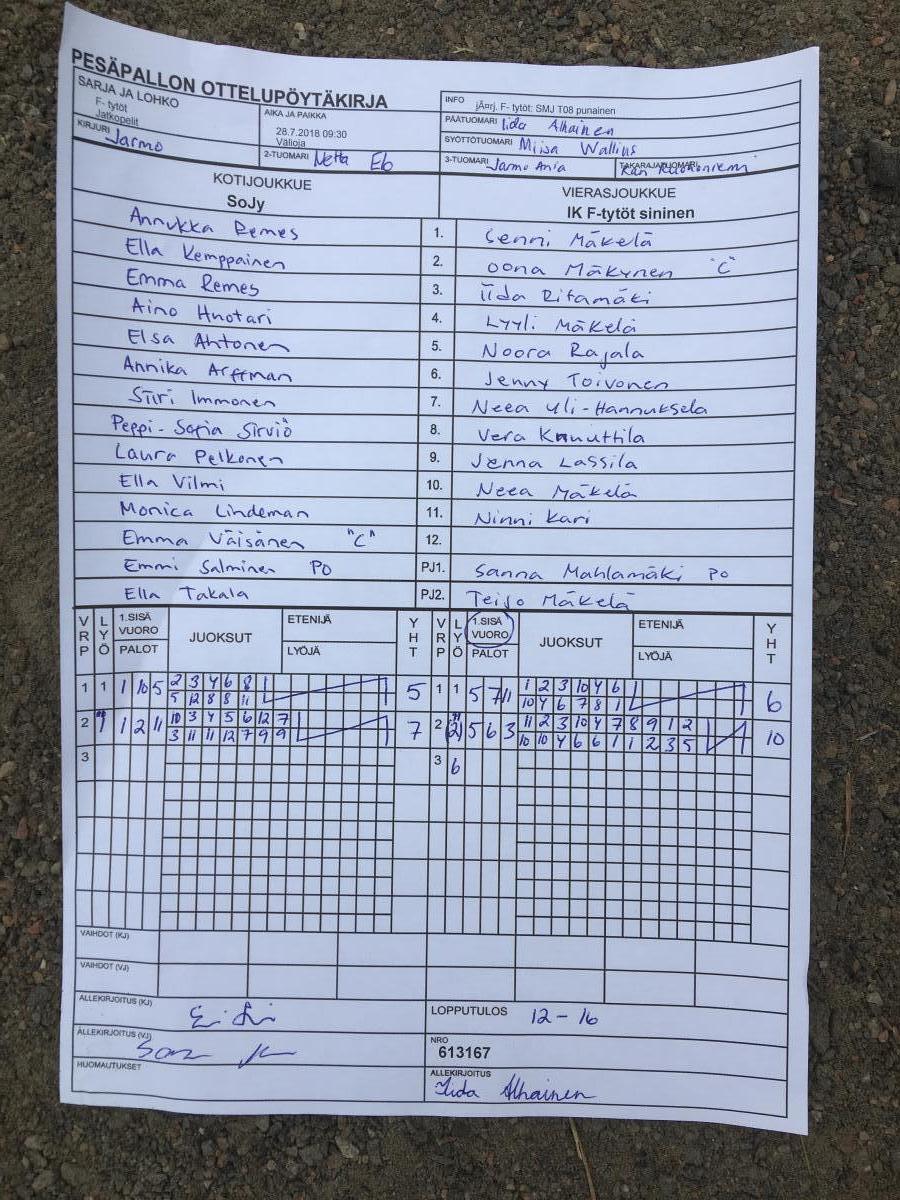 PESÄPALLON OTTELUPÖYTÄKIRJA
SARJA JA LOHKO
F- tytöt
Jatkopelit
AIKA JA PAIKKA
28.7.2018 09:30
Välioja
KIRJURI Jarmo
2-TUOMARI Netta Eb
INFO
jÃ¤rj. F- tytöt: SMJ T08 punainen
PÄÄTUOMARI Iida Alhainen
SYÖTTÖTUOMARI Miisa Wallius
3-TUOMARI Jarmo Ania
TAKARAJATUOMARI
KOTIJOUKKUE
SoJy
VIERASJOUKKUE
IK F-tytöt sininen
Annukka Remes 1. Senni Mäkelä
Ella Kemppainen 2. Oona Mäkynen "C"
Emma Remes 3. Iida Ritamäki
Aino Huotari 4. Lyyli Mäkelä
Elsa Ahtonen 5. Noora Rajala
Annika Arffman 6. Jenny Toivonen
Siiri Immonen 7. Neea Yli-Hannuksela
Peppi-Sofia Sirviö 8. Vera Knuuttila
Laura Pelkonen 9. Jenna Lassila
Ella Vilmi 10. Neea Mäkelä
Monica Lindeman 11. Ninni Kari
Emma Väisänen "C" 12.
Emmi Salminen PO PJ1. Sanna Mahlamäki PO
Ella Takala PJ2. Teijo Mäkelä
VRP LYÖ 1.SISÄ VUORO PALOT JUOKSUT ETENIJÄ LYÖJÄ YHT VRP LYÖ 1.SISÄ VUORO PALOT JUOKSUT ETENIJÄ LYÖJÄ YHT
1 1 1 10 5 2 3 4 6 8 5 1 1 5 7 11 1 2 3 10 4 6 6
5 12 8 8 11 10 4 6 7 8 1
2 1 1 2 11 10 3 4 5 6 12 7 7 2 (2) 5 6 3 11 2 3 10 4 7 8 9 1 2 10
3 11 11 12 7 9 9 10 10 4 6 6 1 1 2 3 5
3 3 6
VAIHDOT (KJ)
VAIHDOT (VJ)
ALLEKIRJOITUS (KJ)
LOPPUTULOS 12-16
ALLEKIRJOITUS (VJ)
NRO
613167
HUOMAUTUKSET
ALLEKIRJOITUS
Iida Alhainen